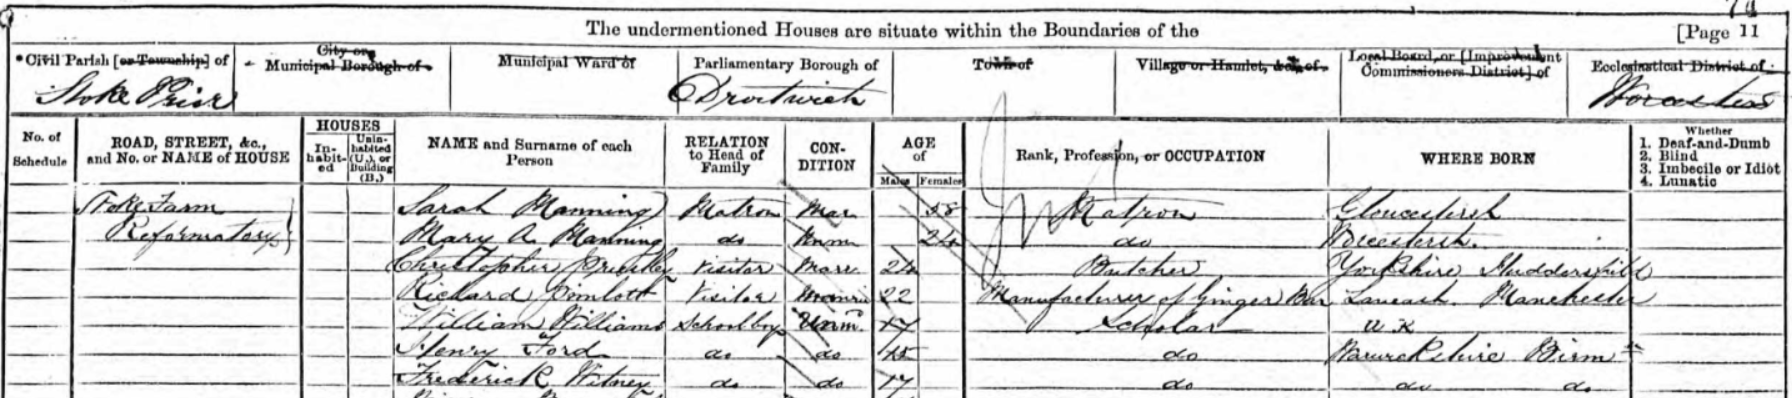 The undermentioned Houses are situate within the Boundaries of the
[Page 11
Civil Parish [or Township] of City or Municipal Borough of Municipal Ward of Parliamentary Borough of Town of Village or Hamlet, &c., of Local Board, or [Improvement Commissioners District] of Ecclesiastical District of
Stoke Prior Droitwich Worcester
No. of Schedule ROAD, STREET, &c., and No. or NAME of HOUSE HOUSES Inhabited Uninhabited (U.), or Building (B.) NAME and Surname of each Person RELATION to Head of Family CONDITION AGE of Males Females Rank, Profession, or OCCUPATION WHERE BORN Whether 1. Deaf-and-Dumb 2. Blind 3. Imbecile or Idiot 4. Lunatic
Stoke Farm Sarah Manning Matron Mar 58 Matron Gloucestersh
Reformatory Mary A. Manning do Unm 24 do Worcestersh.
Christopher Visitor Marr 24 Butcher Yorkshire Huddersfield
Richard Visitor 22 Manufacturer of Ginger Lancash. Manchester
William Williams Schoolboy Unm. 17 Scholar U K
Henry Ford do do 15 do Warwickshire Birm
Frederick Witney do do 17 do do do